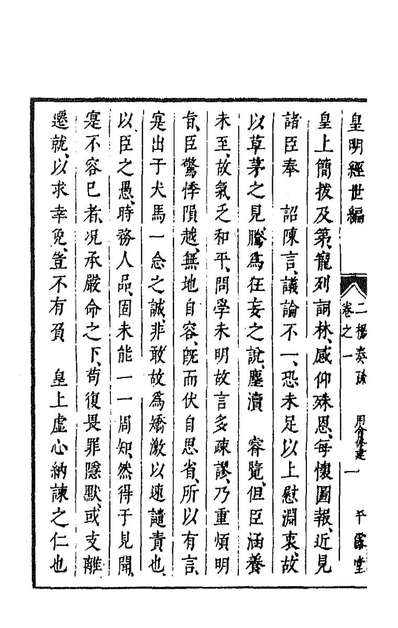 皇明經世編
二楊奏疏
卷之一
一
平露堂
皇上簡拨及第、寵列詞林、感仰殊恩、每懷圖報、近見
諸臣奉 詔陳言、議論不一、恐未足以上慰淵衷、故
以草茅之見、騰為狂妄之說、塵瀆 睿覽、但臣涵養
未至、故氣乏和平、問學未明、故言多疎謬、乃重煩明
旨、臣驚悸隕越、無地自容、旣而伏自思省、所以有言、
寔出于犬馬一念之誠、非敢故為矯激以遠譴責也、
以臣之愚、時務人品、固未能一一周知、然得于見聞、
寔不容已者、况承嚴命之下、苟復畏罪隱默、或支離
遷就、以求幸免、豈不有負 皇上虛心納諫之仁也